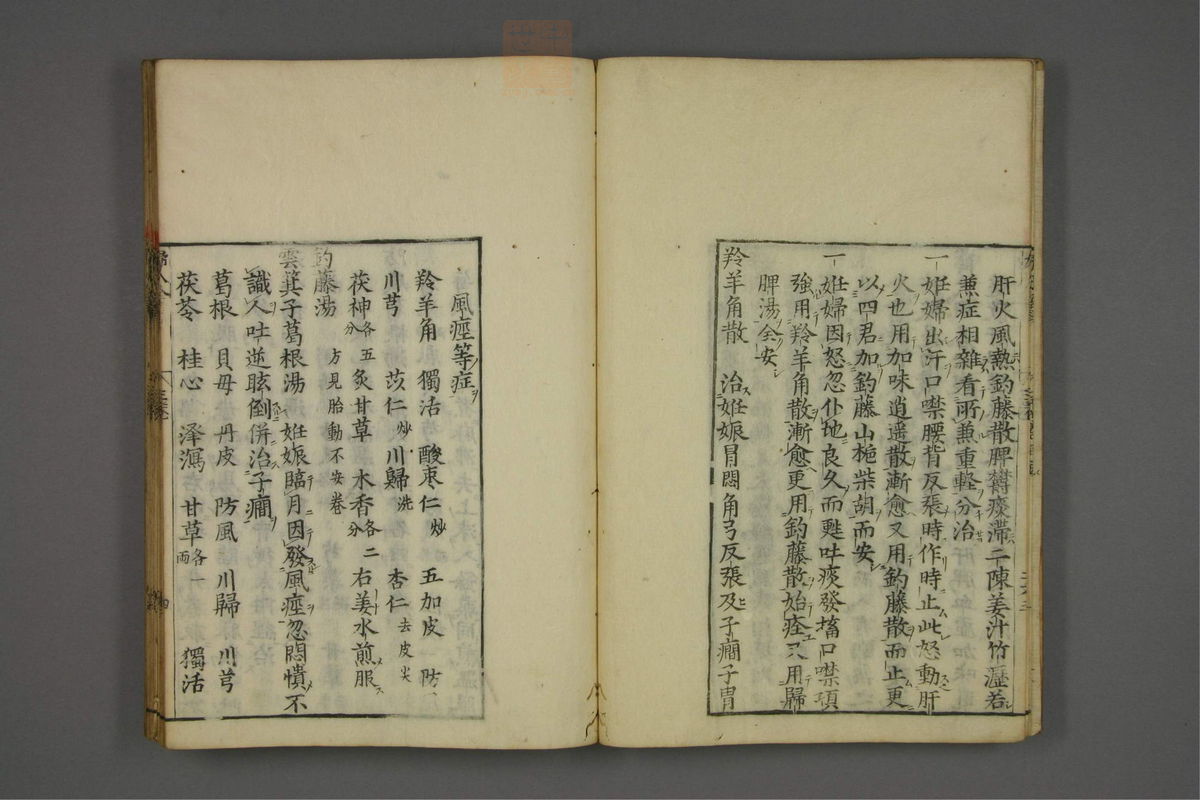 肝火風熱釣藤散脾欝痰滞二陳姜汁竹瀝若
兼症相雜看所兼重軽分治
一妊婦出汗口噤腰背反張時作時止此怒動肝
火也用加味逍遥散漸愈又用釣藤散而止更
以四君加釣藤山梔柴胡而安
一妊婦因怒忽仆地良久而甦吐痰發搐口噤項
強用羚羊角散漸愈更用釣藤散始痊又用歸
脾湯全安
羚羊角散 治妊娠冒悶角弓反張及子癎子冑
風痙等症
羚羊角 獨活 酸棗仁炒 五加皮 防
川芎 苡仁炒 川歸洗 杏仁去皮尖
茯神各五分 炙甘草 木香各二分 右姜水煎服
釣藤湯 方見胎動不安卷
雲箕子葛根湯 妊娠臨月因發風痙忽悶憒不
識人吐逆眩倒併治子癎
葛根 貝母 丹皮 防風 川歸 川芎
茯苓 桂心 泽瀉 甘草各一両 獨活